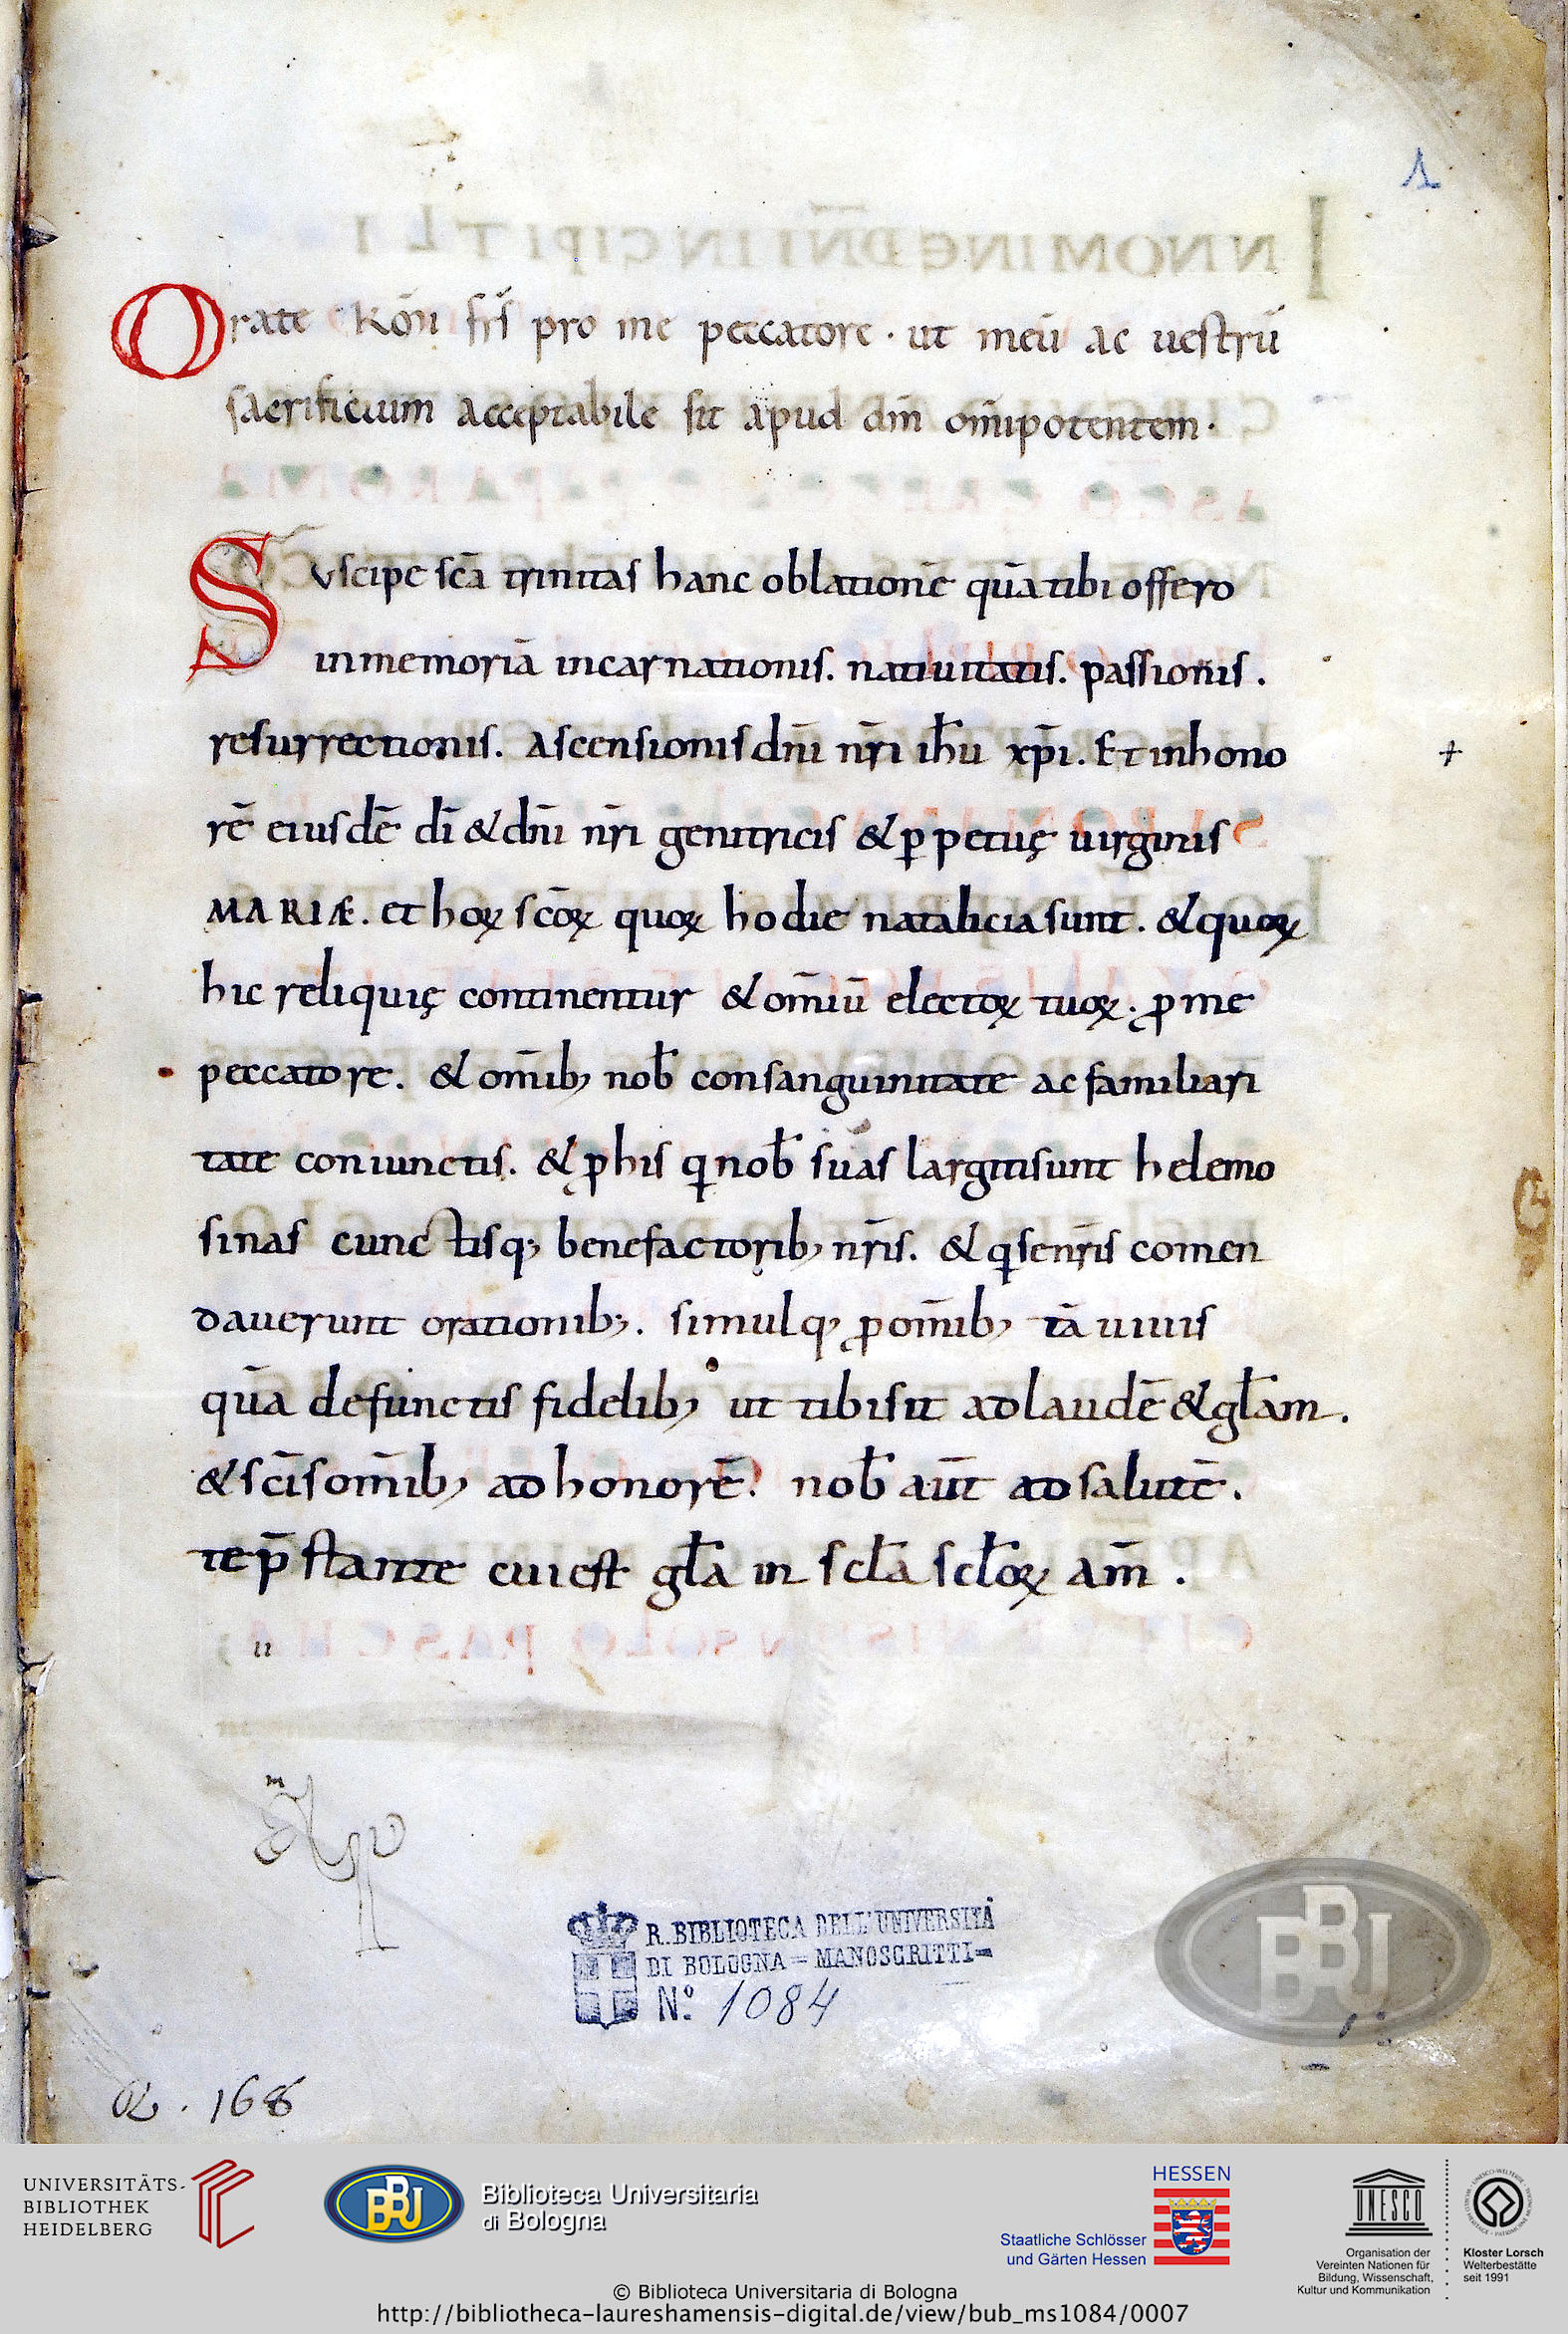 1
Orate K̄o̅m̅ fr̄s pro me peccatore · ut meū ac uestrū
sacrificium acceptabile sit apud dm̄ om̄ipotentem ·
Suscipe sc̄a trinitas hanc oblationē quā tibi offero
in memoriā incarnationis. natiuitatis. passionis.
resurrectionis. Ascensionis dn̄i nr̄i ih̄u xp̄i. Et in hono
rē eiusdē dī & dn̄i nr̄i genitricis & ꝑpetuę uirginis
MARIÆ. et hoꝝ scōꝝ quoꝝ hodie natalicia sunt. & quoꝝ
hic reliquię continentur & om̄iū electoꝝ tuoꝝ. ꝓ me
peccatore. & om̄ib; nob̄ consanguinitate ac familiari
tate coniunctis. & ꝓ his q nob̄ suas largiti sunt helemo
sinas cunctisq; benefactorib; nr̄is. & q se nr̄is comen
dauerunt orationib;. simulq; ꝓ om̄ib; tā uiuis
quā defunctis fidelib; ut tibi sit ad laudē & gl̄am.
& sc̄is om̄ib; ad honorē. nob̄ aūt ad salutē.
te p̄stante cui est gl̄a in scl̄a scl̄oꝝ am̄.
R. BIBLIOTECA DELL'UNIVERSITÀ
DI BOLOGNA = MANOSCRITTI =
N.º 1084
BBU
168
UNIVERSITÄTS-
BIBLIOTHEK
HEIDELBERG
BBU
Biblioteca Universitaria
di Bologna
HESSEN
Staatliche Schlösser
und Gärten Hessen
UNESCO
Organisation der
Vereinten Nationen für
Bildung, Wissenschaft,
Kultur und Kommunikation
Kloster Lorsch
Welterbestätte
seit 1991
© Biblioteca Universitaria di Bologna
http://bibliotheca-laureshamensis-digital.de/view/bub_ms1084/0007